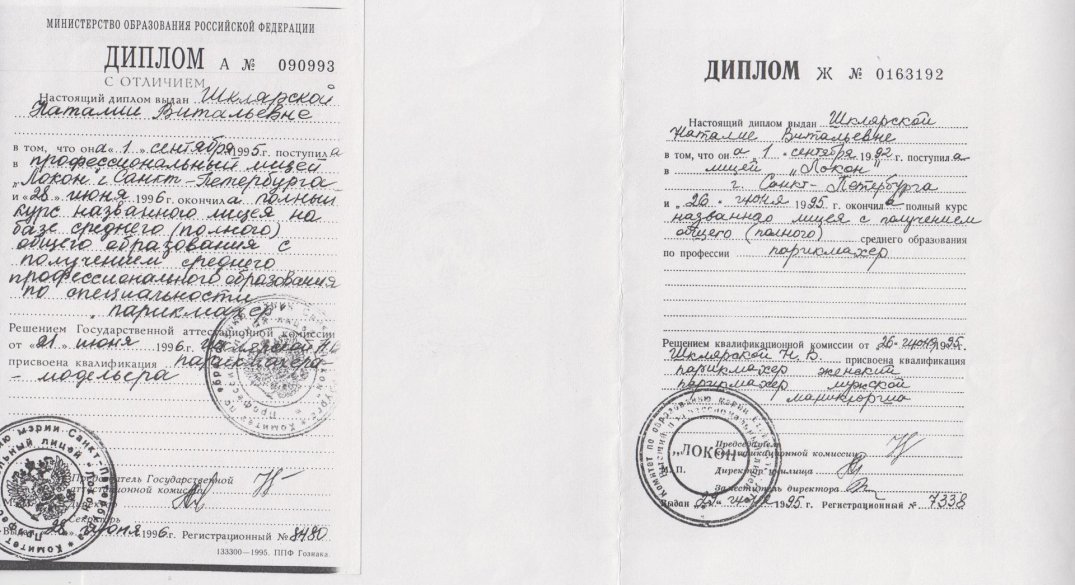 МИНИСТЕРСТВО ОБРАЗОВАНИЯ РОССИЙСКОЙ ФЕДЕРАЦИИ
ДИПЛОМ А № 090993
С ОТЛИЧИЕМ
Настоящий диплом выдан Шклярской
Наталии Витальевне
в том, что она « 1 » сентября 1995 г. поступила
в профессиональный лицей
„Локон" г. Санкт-Петербурга
и «28» июня 1996 г. окончила полный
курс названного лицея на
базе среднего (полного)
общего образования с
получением среднего
профессионального образования
по специальности
„парикмахер"
Решением Государственной аттестационной комиссии
от «21» июня 1996 г. Шклярской Н.В.
присвоена квалификация парикмахера
- модельера
Председатель Государственной
аттестационной комиссии
Директор
Секретарь
Выдан «28» июня 1996 г. Регистрационный № 8480
133300—1995. ППФ Гознака.
ДИПЛОМ Ж № 0163192
Настоящий диплом выдан Шклярской
Наталие Витальевне
в том, что он а „ 1 " сентября 1992 г. поступил а
в лицей „Локон"
г. Санкт-Петербурга
и „ 26 " июня 1995 г. окончил а полный курс
названнао лицея с получением
общего (полного) среднего образования
по профессии парикмахер
Решением квалификационной комиссии от 26 июня 1995 г.
Шклярской Н. В. присвоена квалификация
парикмахер женский
парикмахер мужской
маникюрша
Председатель
квалификационной комиссии
„ЛОКОН"
М. П. Директор училища
Заместитель директора
Выдан июня 1995 г. Регистрационный № 7338